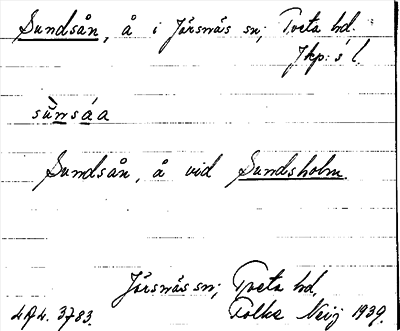 Sundsån, å i Järsnäs sn; Tveta hd.
Jkp:s l.
sùnsáa
Sundsån, å vid Sundsholm.
Järsnäs sn; Tveta hd.
494. 3783. Folke Meij 1939.